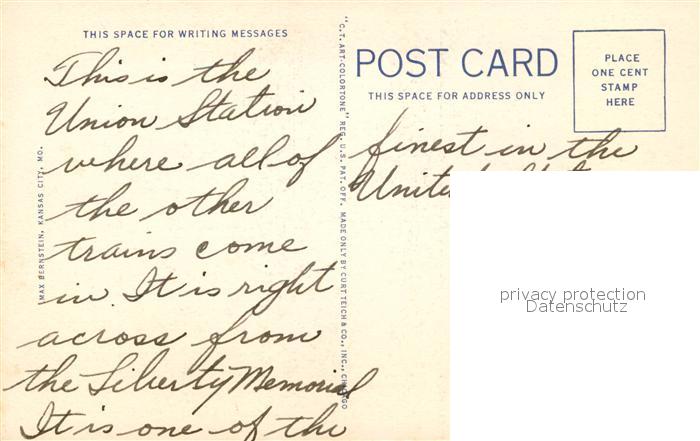 THIS SPACE FOR WRITING MESSAGES
This is the
Union Station
where all of
the other
trains come
in. It is right
across from
the Liberty Memorial
It is one of the
MAX BERNSTEIN, KANSAS CITY, MO.
"C.T. ART-COLORTONE" REG. U.S. PAT. OFF. MADE ONLY BY CURT TEICH & CO., INC., CHICAGO
POST CARD
THIS SPACE FOR ADDRESS ONLY
PLACE
ONE CENT
STAMP
HERE
finest in the
privacy protection
Datenschutz